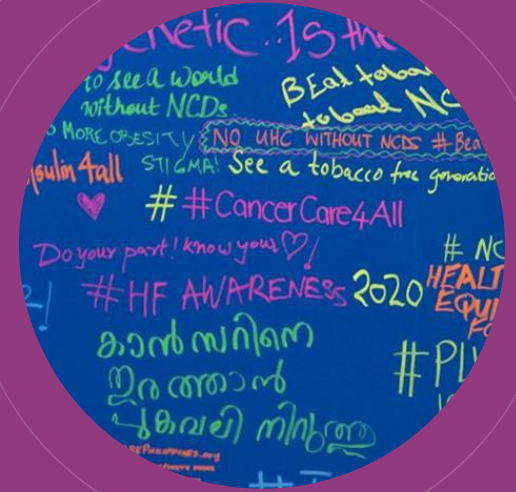 netic.. Is the
to see a world
without NCDs
BEat toba
to beat NC
MORE OBESITY
NO UHC WITHOUT NCDS # Bea
STIGMA!
insulin 4all
See a tobacco free generatio
# #CancerCare4All
Do your part! know your ♡!
#HF AWARENESS 2020
# NC
HEALT
EQUI
FO
കാൻസറിനെ
തുരത്താൻ
പുകവലി നിറുത്തൂ
#PL